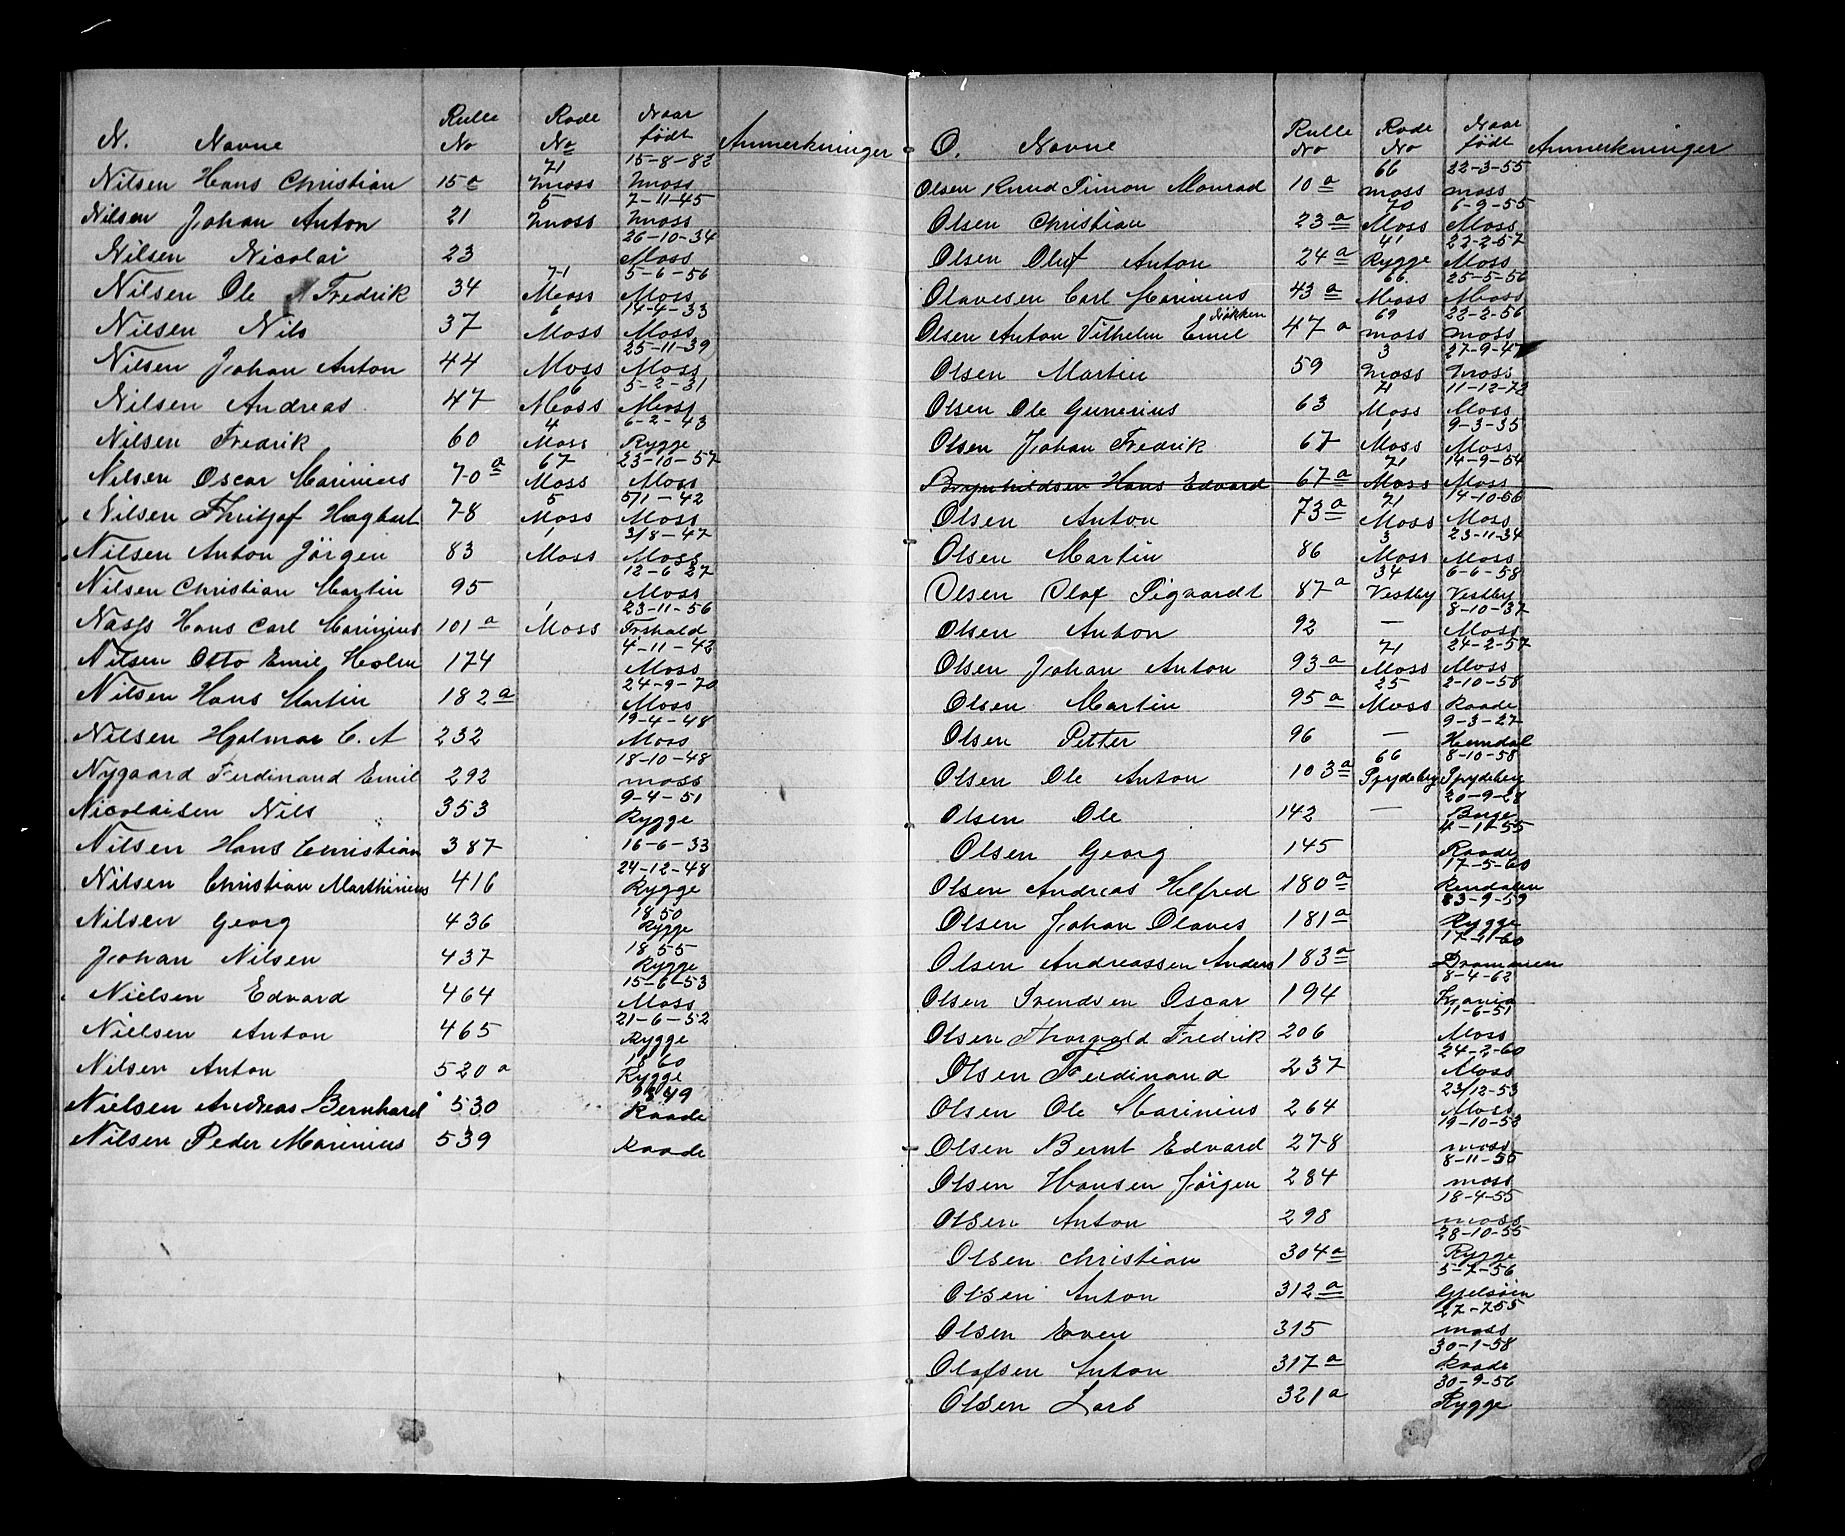 N. Navne Rulle No Rode No Naar født Anmerkninger
Nilsen Hans Christian 15a 71 Moss 15-8-82 Moss
Nilsen Johan Anton 21 5 Moss 7-11-45 Moss
Nilsen Nicolai 23 26-10-34 Moss
Nilsen Ole Fredrik 34 71 Moss 5-6-56 Moss
Nilsen Nils 37 6 Moss 14-4-33 Moss
Nilsen Johan Anton 44 Moss 25-11-39 Moss
Nilsen Andreas 47 6 Moss 5-2-31 Moss
Nilsen Fredrik 60 4 Moss 6-2-43 Rygge
Nilsen Oscar Marinius 70a 67 Moss 23-10-57 Moss
Nilsen Thritjof Hagbart 78 5 Moss 5/1-42 Moss
Nilsen Anton Jörgen 83 1 Moss 3/8-47 Moss
Nilsen Christian Martin 95 12-6 27 Moss
Næss Hans Carl Marinius 101a 1 Moss 23-11-56 Frshald
Nilsen Otto Emil Holm 174 4-11-42 Moss
Nilsen Hans Martin 182a 24-9-70 Moss
Nilsen Hjalmar C. A 232 19-4-48 Moss
Nygaard Ferdinand Emil 292 18-10-48 Moss
Nicolaisen Nils 353 9-4-51 Rygge
Nilsen Hans Christian 387 16-6-33
Nilsen Christian Marthinius 416 24-12-48 Rygge
Nilsen Georg 436 1850 Rygge
Johan Nilsen 437 1855 Rygge
Nielsen Edvard 464 15-6-53 Moss
Nielsen Anton 465 21-6-52 Rygge
Nilsen Anton 520a 1860 Rygge
Nielsen Andreas Bernhard 530 1849 Raade
Nilsen Peder Marinius 539 Raade
O. Navne Rulle No Rode No Naar født Anmerkninger
Olsen Knud Simon Monrad 10a 66 Moss 22-3-55 Moss
Olsen Christian 23a 70 Moss 6-9-55 Moss
Olsen Oluf Anton 24a 41 Rygge 22-2-57 Moss
Olavesen Carl Marinius 43a 66. Moss 25-5-56 Moss
Olsen Anton Vilhelm Emil 47a 69 Moss 22-2-56 Moss
Olsen Martin 59 3 Moss 27-9-47 Moss
Olsen Ole Gunerius 63 71 Moss 11-12-72 Moss
Olsen Johan Fredrik 67 1 Moss 9-3-35 Moss
Brynhildsen Hans Edvard 67a 71 Moss 14-9-54 Moss
Olsen Anton 73a 71 Moss 14-10-56 Moss
Olsen Martin 86 3 Moss 23-11-34 Moss
Olsen Olaf Sigvardt 87a 34 Vestby 6-6-58 Vestby
Olsen Anton 92 — 8-10-37 Moss
Olsen Johan Anton 93a 71 Moss 24-2-57 Moss
Olsen Martin 95a 25 Moss 2-10-58 Raade
Olsen Petter 96 — 9-3-27 Hemdal
Olsen Ole Anton 103a 66 Spydeberg 8-10-58 Spydeberg
Olsen Ole 142 — 20-9-28 Borge
Olsen Georg 145 4-11-55 Raade
Olsen Andreas Helfred 180a 17-5-60 Rendalen
Olsen Johan Olaves 181a 23-9-59 Rygge
Olsen Andreassen Anders 183a 17-11-60 Drammen
Olsen Svendsen Oscar 194 8-4-62 Krania
Olsen Thorvald Fredrik 206 11-6-51 Moss
Olsen Ferdinand 237 24-2-60 Moss
Olsen Ole Marinius 264 23/12-53 Moss
Olsen Bernt Edvard 278 19-10-53 Moss
Olsen Hansen Jörgen 284 8-11-55 Moss
Olsen Anton 298 18-4-55 Moss
Olsen Christian 304a 28-10-55 Rygge
Olsen Anton 312a 5-7-56 Gjelsöin
Olsen Even 315 27-7-55 Moss
Olafsen Anton 317a 30-1-58 Raade
Olsen Lars 321a 30-9-56 Rygge